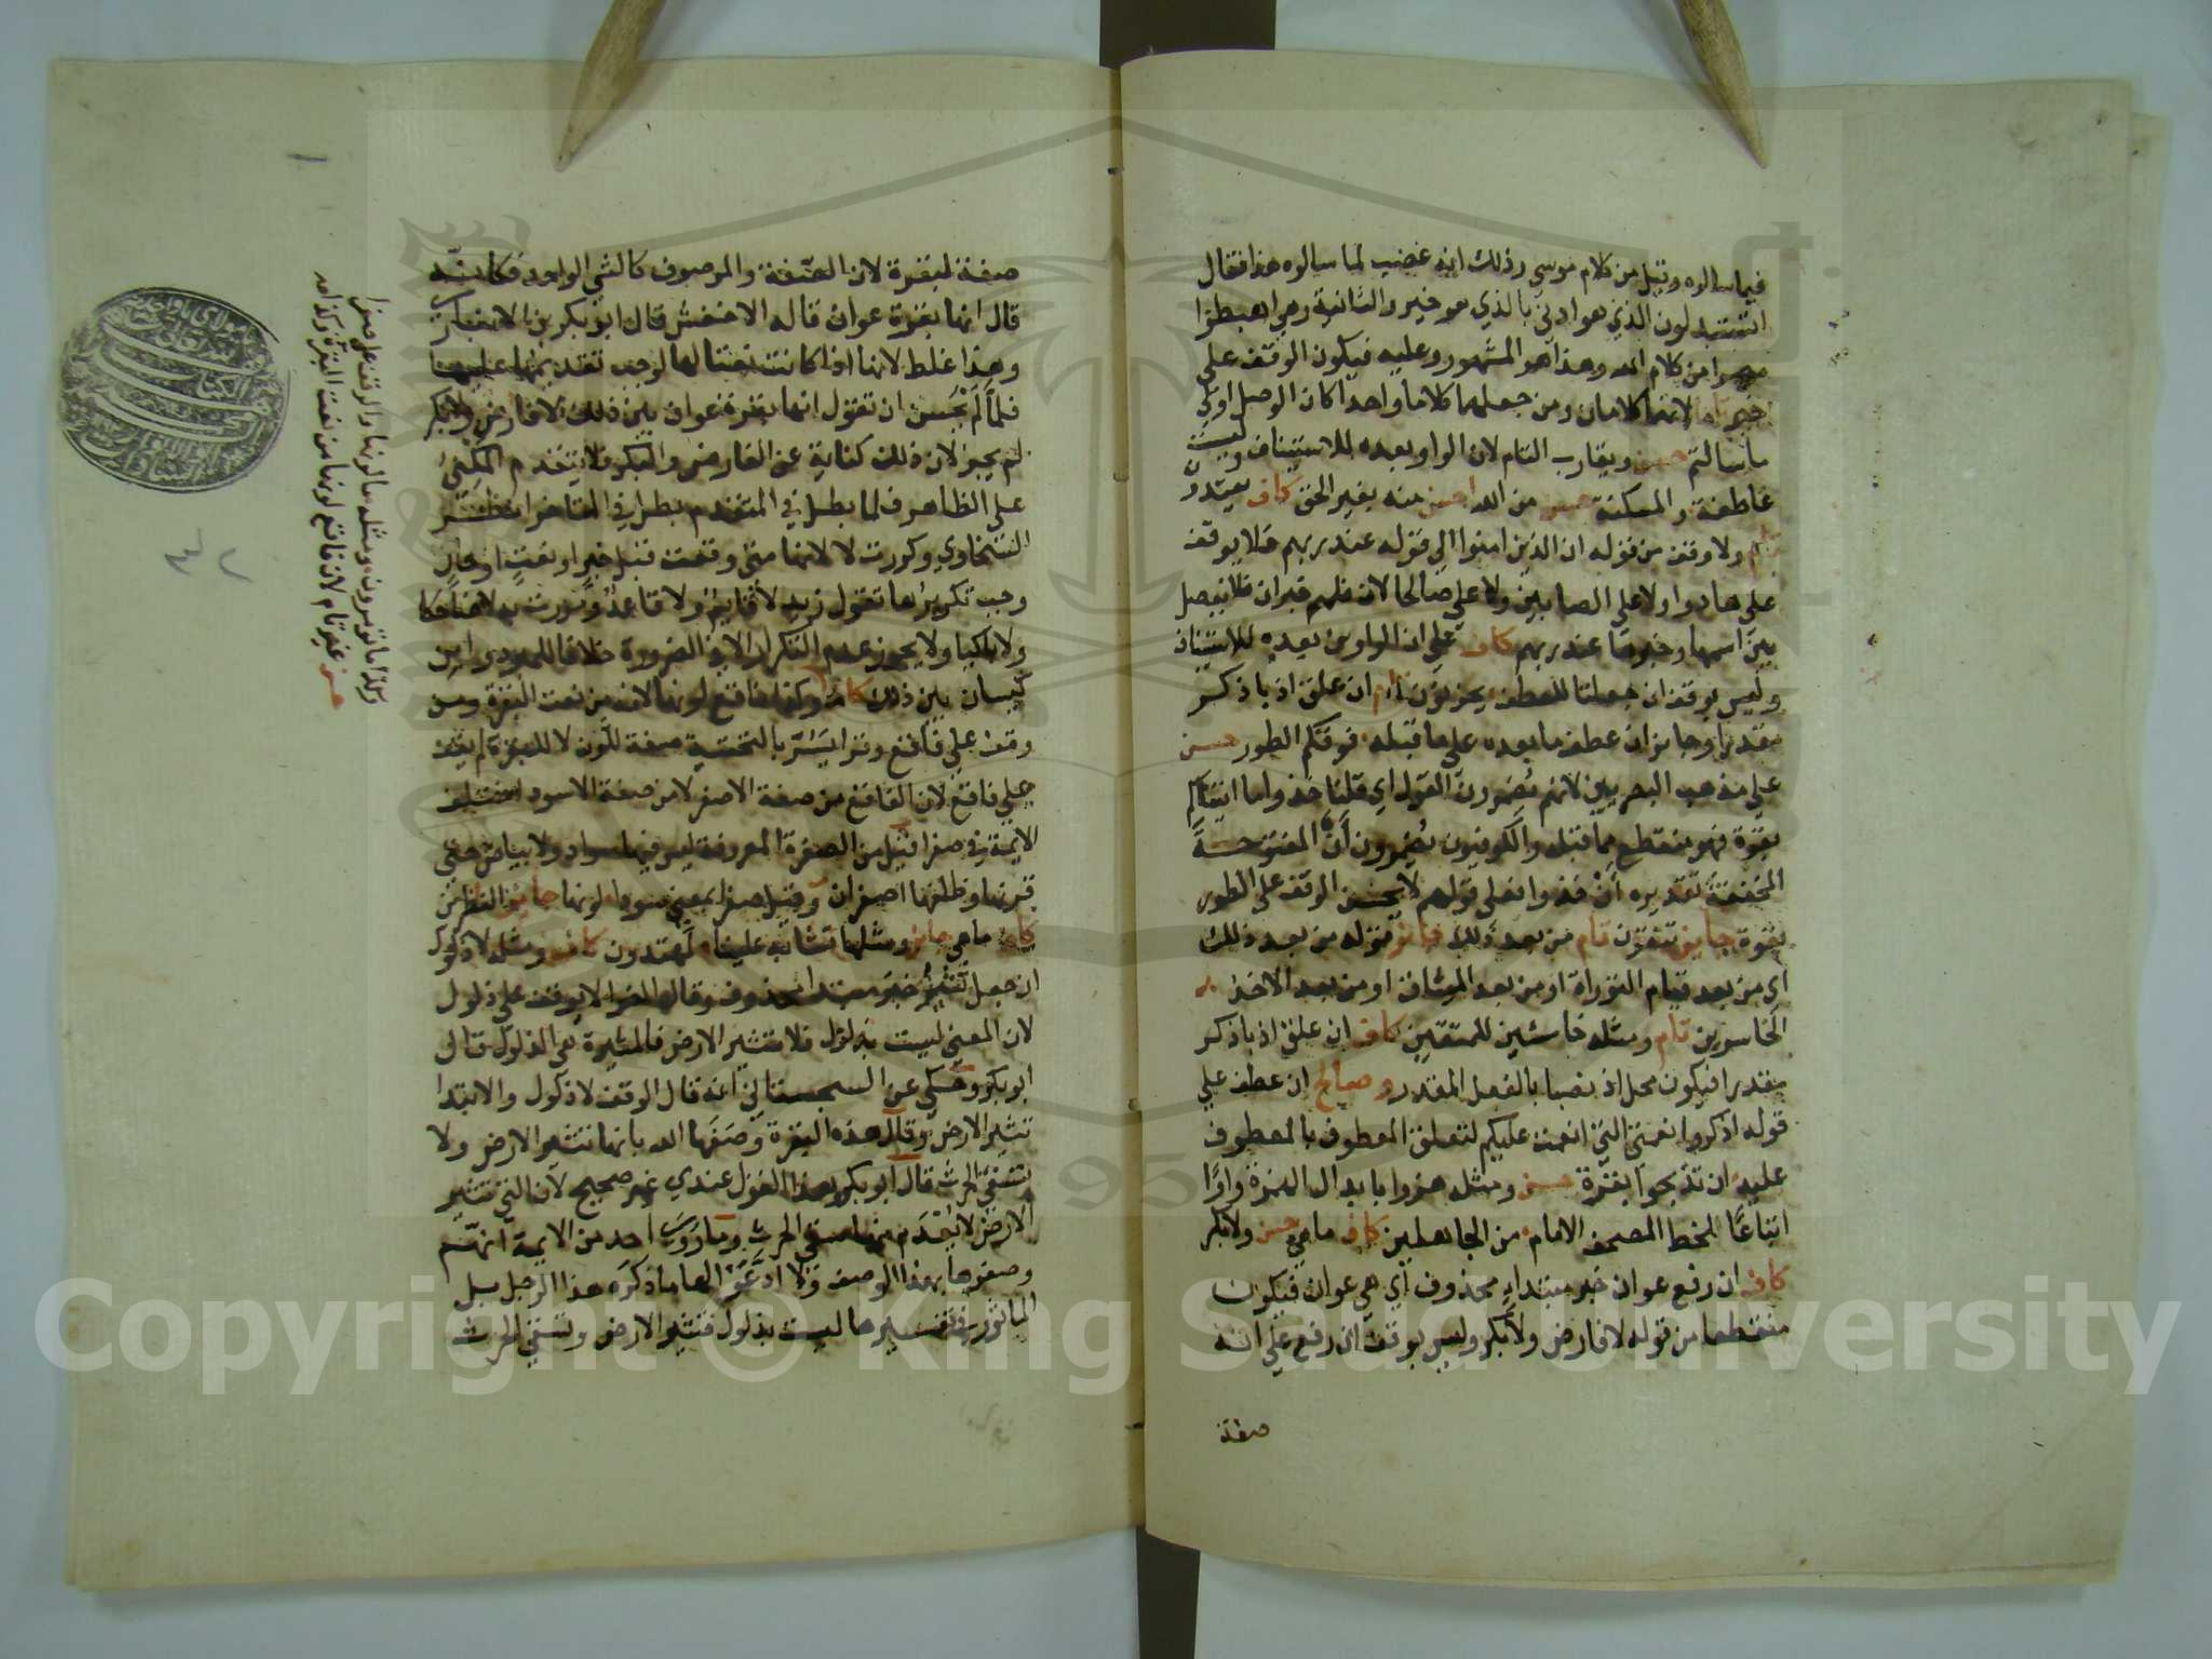 فيما سالوه وقيل من كلام موسى وذلك انه غضب لما سالوه هذا فقال
اتستبدلون الذي هو ادنى بالذي هو خير والثانية وهي اهبطوا
مصرا من كلام الله وهذا هو المشهور وعليه فيكون الوقف على
خير تام لانهما كلامان ومن جعلهما كلاما واحدا كان الوصل اولى
ما سالتم حسن ويقارب التام لان الواو بعده للاستيناف وليست
عاطفة والمسكنة حسن من الله احسن منه بغير الحق كاف يعتدون
تام ولا وقف من قوله ان الذين امنوا الى قوله عند ربهم فلا يوقف
على هادوا ولا على الصابين ولا على صالحا لان فلهم خبر ان فلا يفصل
بين اسمها وخبرها عند ربهم كاف على ان الواوين بعده للاستيناف
وليس بوقف ان جعلتا للعطف يحزنون تام ان علق اذ باذكر
مقدرا وجايز ان عطف ما بعده على ما قبله فوقكم الطور حسن
على مذهب البصريين لانهم يضمرون القول اي قلنا خذوا ما اتيناكم
بقوة فهو منقطع مما قبله والكوفيون يضمرون أن المفتوحة
المخففة تقديره أن خذوا فعلى قولهم لا يحسن الوقف على الطور
بقوة جايز تتقون تام من بعد ذلك جايز قوله من بعد ذلك
اي من بعد قيام التوراة او من بعد الميثاق او من بعد الاخذ
الخاسرين تام ومثله خاسئين للمتقين كاف ان علق اذ باذكر
مقدرا فيكون محل اذ نصبا بالفعل المقدر وصالح ان عطف على
قوله اذكروا نعمتي التي انعمت عليكم لتعلق المعطوف بالمعطوف
عليه ان تذبحوا بقرة حسن ومثله هزوا بابدال الهمزة واوًا
اتباعًا لخط المصحف الامام من الجاهلين كاف ما هي حسن ولا بكر
كاف ان رفع عوان خبر مبتداء محذوف اي هي عوان فيكون
منقطعا من قوله لا فارض ولا بكر وليس بوقف ان رفع على انه
صفة
صفة لبقرة لان الصفة والموصوف كالشي الواحد فكانه
قال انها بقرة عوان قاله الاخفش قال ابو بكر بن الانباري
وهذا غلط لانها اذا كانت نعتا لها لوجب تقديمها عليهما
فلما لم يحسن ان تقول انها بقرة عوان بين ذلك لا فارض ولا بكر
لم يجز لان ذلك كناية عن الفارض والبكر فلا يتقدم المكنى
على الظاهر فلما بطل في المتقدم بطل في المتاخر انظر
السخاوي وكررت لا لانها متى وقعت قبل خبر او نعت او حال
وجب تكريرها تقول زيد لا قايم ولا قاعد ومررت به لا ضاحكا
ولا باكيا ولا يجوز عدم التكرار الا في الضرورة خلافا للمبرد وابن
كيسان بين ذلك كاف وكذا فاقع لونها لانه من نعت البقرة ومن
وقف على فاقع وقرا يسر بالتحتية صفة للون لا للبقرة لم يقف
على فاقع لان الفاقع من صفة الاصفر لا من صفة الاسود اختلف
الايمة في صفرا قيل من الصفرة المعروفة ليس فيها سواد ولا بياض حتى
قرنها وظلفها اصفران وقيل صفرا بمعنى سودا لونها جايز الناظرين
كاف ما هي جايز ومثلها تشابه علينا لمهتدون كاف ومثله لا ذلول
ان جعل تثير خبر مبتدا محذوف وقال الفرا لا يوقف على ذلول
لان المعنى ليست بذلول فلا تثير الارض فالمثيرة هي الذلول قال
ابو بكر وحكي عن السجستاني انه قال الوقف لا ذلول والابتدا
تثير الارض وقال هذه البقرة وصفها الله بانها تثير الارض ولا
تسقي الحرث قال ابو بكر وهذا القول عندي غير صحيح لان التي تثير
الارض لا يعدم منها سقي الحرث وما روى احد من الايمة انهم
وصفوها بهذا الوصف ولا ادعوا لها ما ذكره هذا الرجل بل
الماثور في تفسيرها ليست بذلول فتثير الارض وتسقي الحرث
وكذا ما تومرون ومثله ما لونها والوقف على صفرا
حسن غير تام لان فاقع لونها من نعت البقرة
٤٢
Copyright © King Saud University